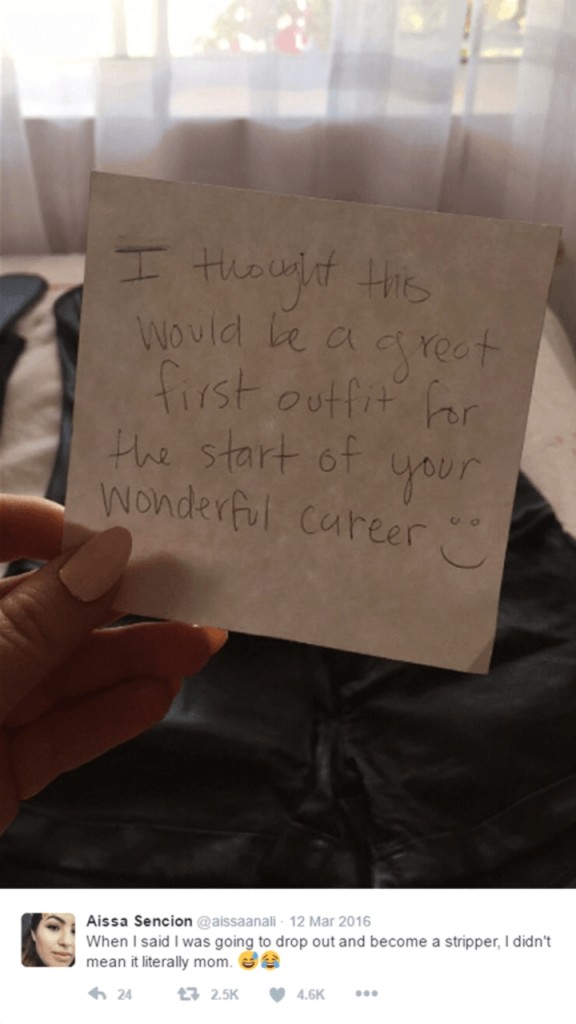 I thought this
would be a great
first outfit for
the start of your
wonderful career :)
Aissa Sencion @aissaanali · 12 Mar 2016
When I said I was going to drop out and become a stripper, I didn't
mean it literally mom. 😅😂
24 2.5K 4.6K •••